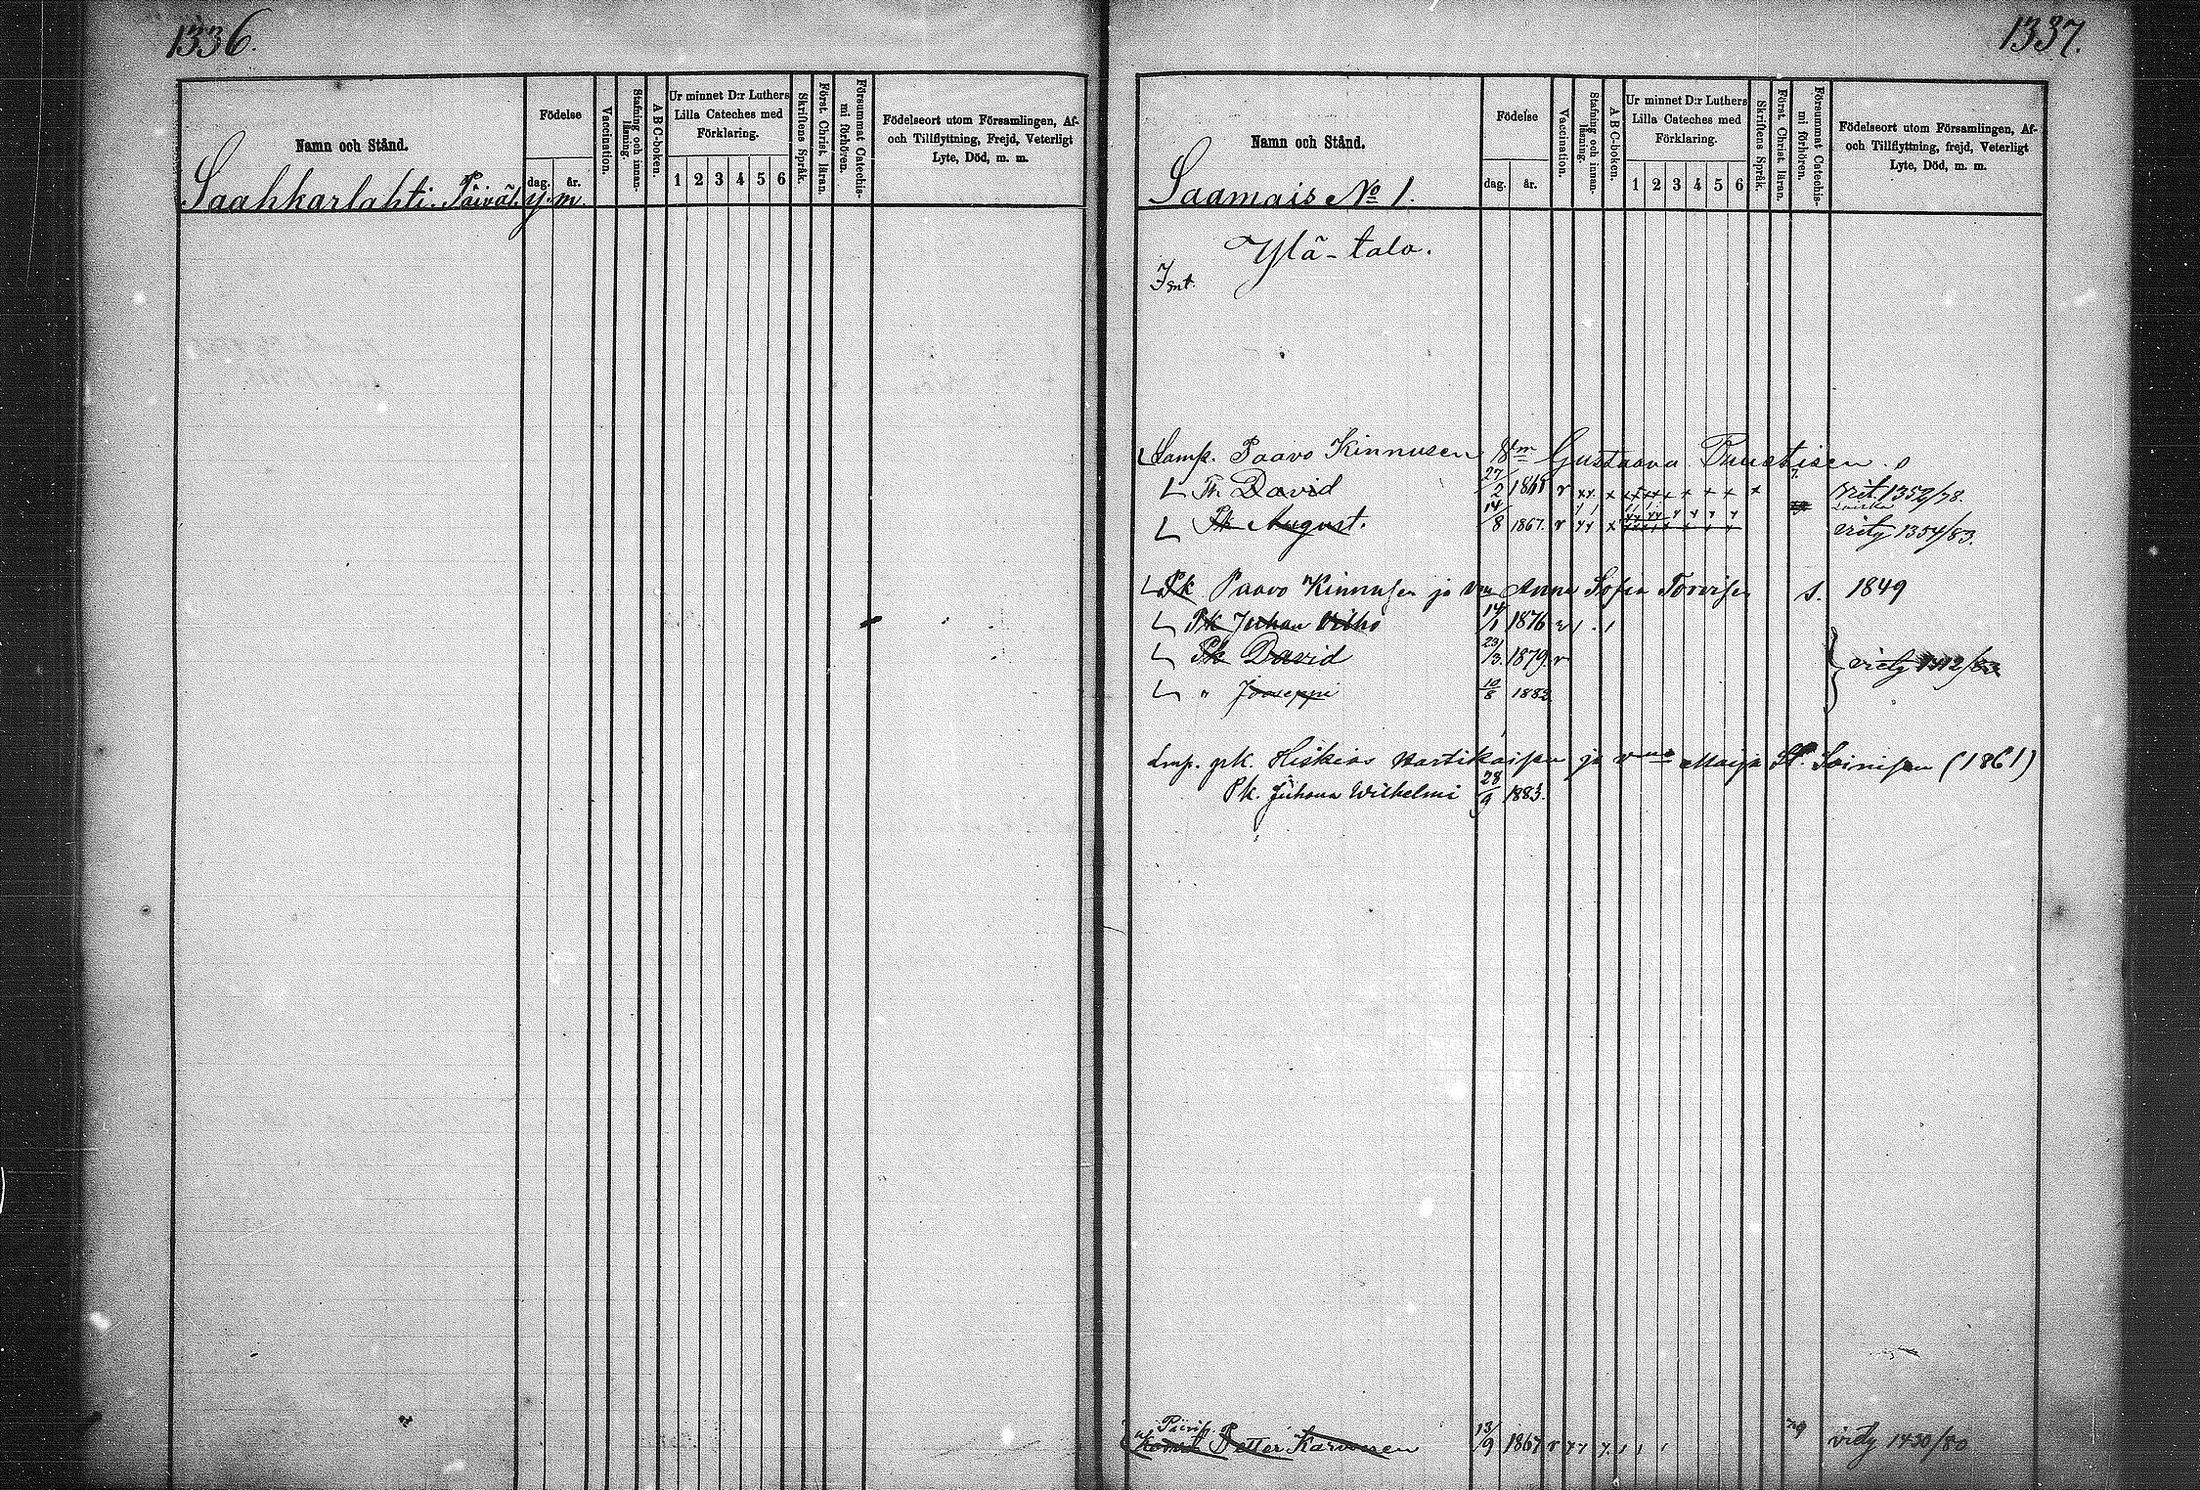 1336.
Namn och Stånd.
Födelse
dag.
år.
Vaccination.
Stafning och innan-läsning.
A B C-boken.
Ur minnet D:r Luthers
Lilla Cateches med
Förklaring.
1 2 3 4 5 6
Skriftens Språk.
Först. Christ. läran.
Försummat Catechis-
mi förhören.
Födelseort utom Församlingen, Af-
och Tillflyttning, Frejd, Veterligt
Lyte, Död, m. m.
Saahkarlahti. Päivät. y. m.
1337.
Namn och Stånd.
Födelse
dag.
år.
Vaccination.
Stafning och innan-läsning.
A B C-boken.
Ur minnet D:r Luthers
Lilla Cateches med
Förklaring.
1 2 3 4 5 6
Skriftens Språk.
Först Christ läran.
Försummat Catechis-
mi förhören.
Födelseort utom Församlingen, Af-
och Tillflyttning, frejd, Veterligt
Lyte, Död, m. m.
Saamais No 1.
Ylä-talo.
Isnt.
Lamp. Paavo Kinnusen Gustaava
David 27/2 1352/78.
Pk August. 14/8 1867. v 1354/83.
Pk Paavo Kinnusen ja Anna Sofia s. 1849
Pk Juhan Vilho 14/1 1876 v
Pk David 23/3. 1879. v
" Jooseppi 10/8 1883
Lmp. pk. Hiskias ja Maija St. Soinisen (1861)
Pk. Juhana Wilhelmi 28/9 1883.
Petter Karvosen 13/9 1867 v 79 1430/80